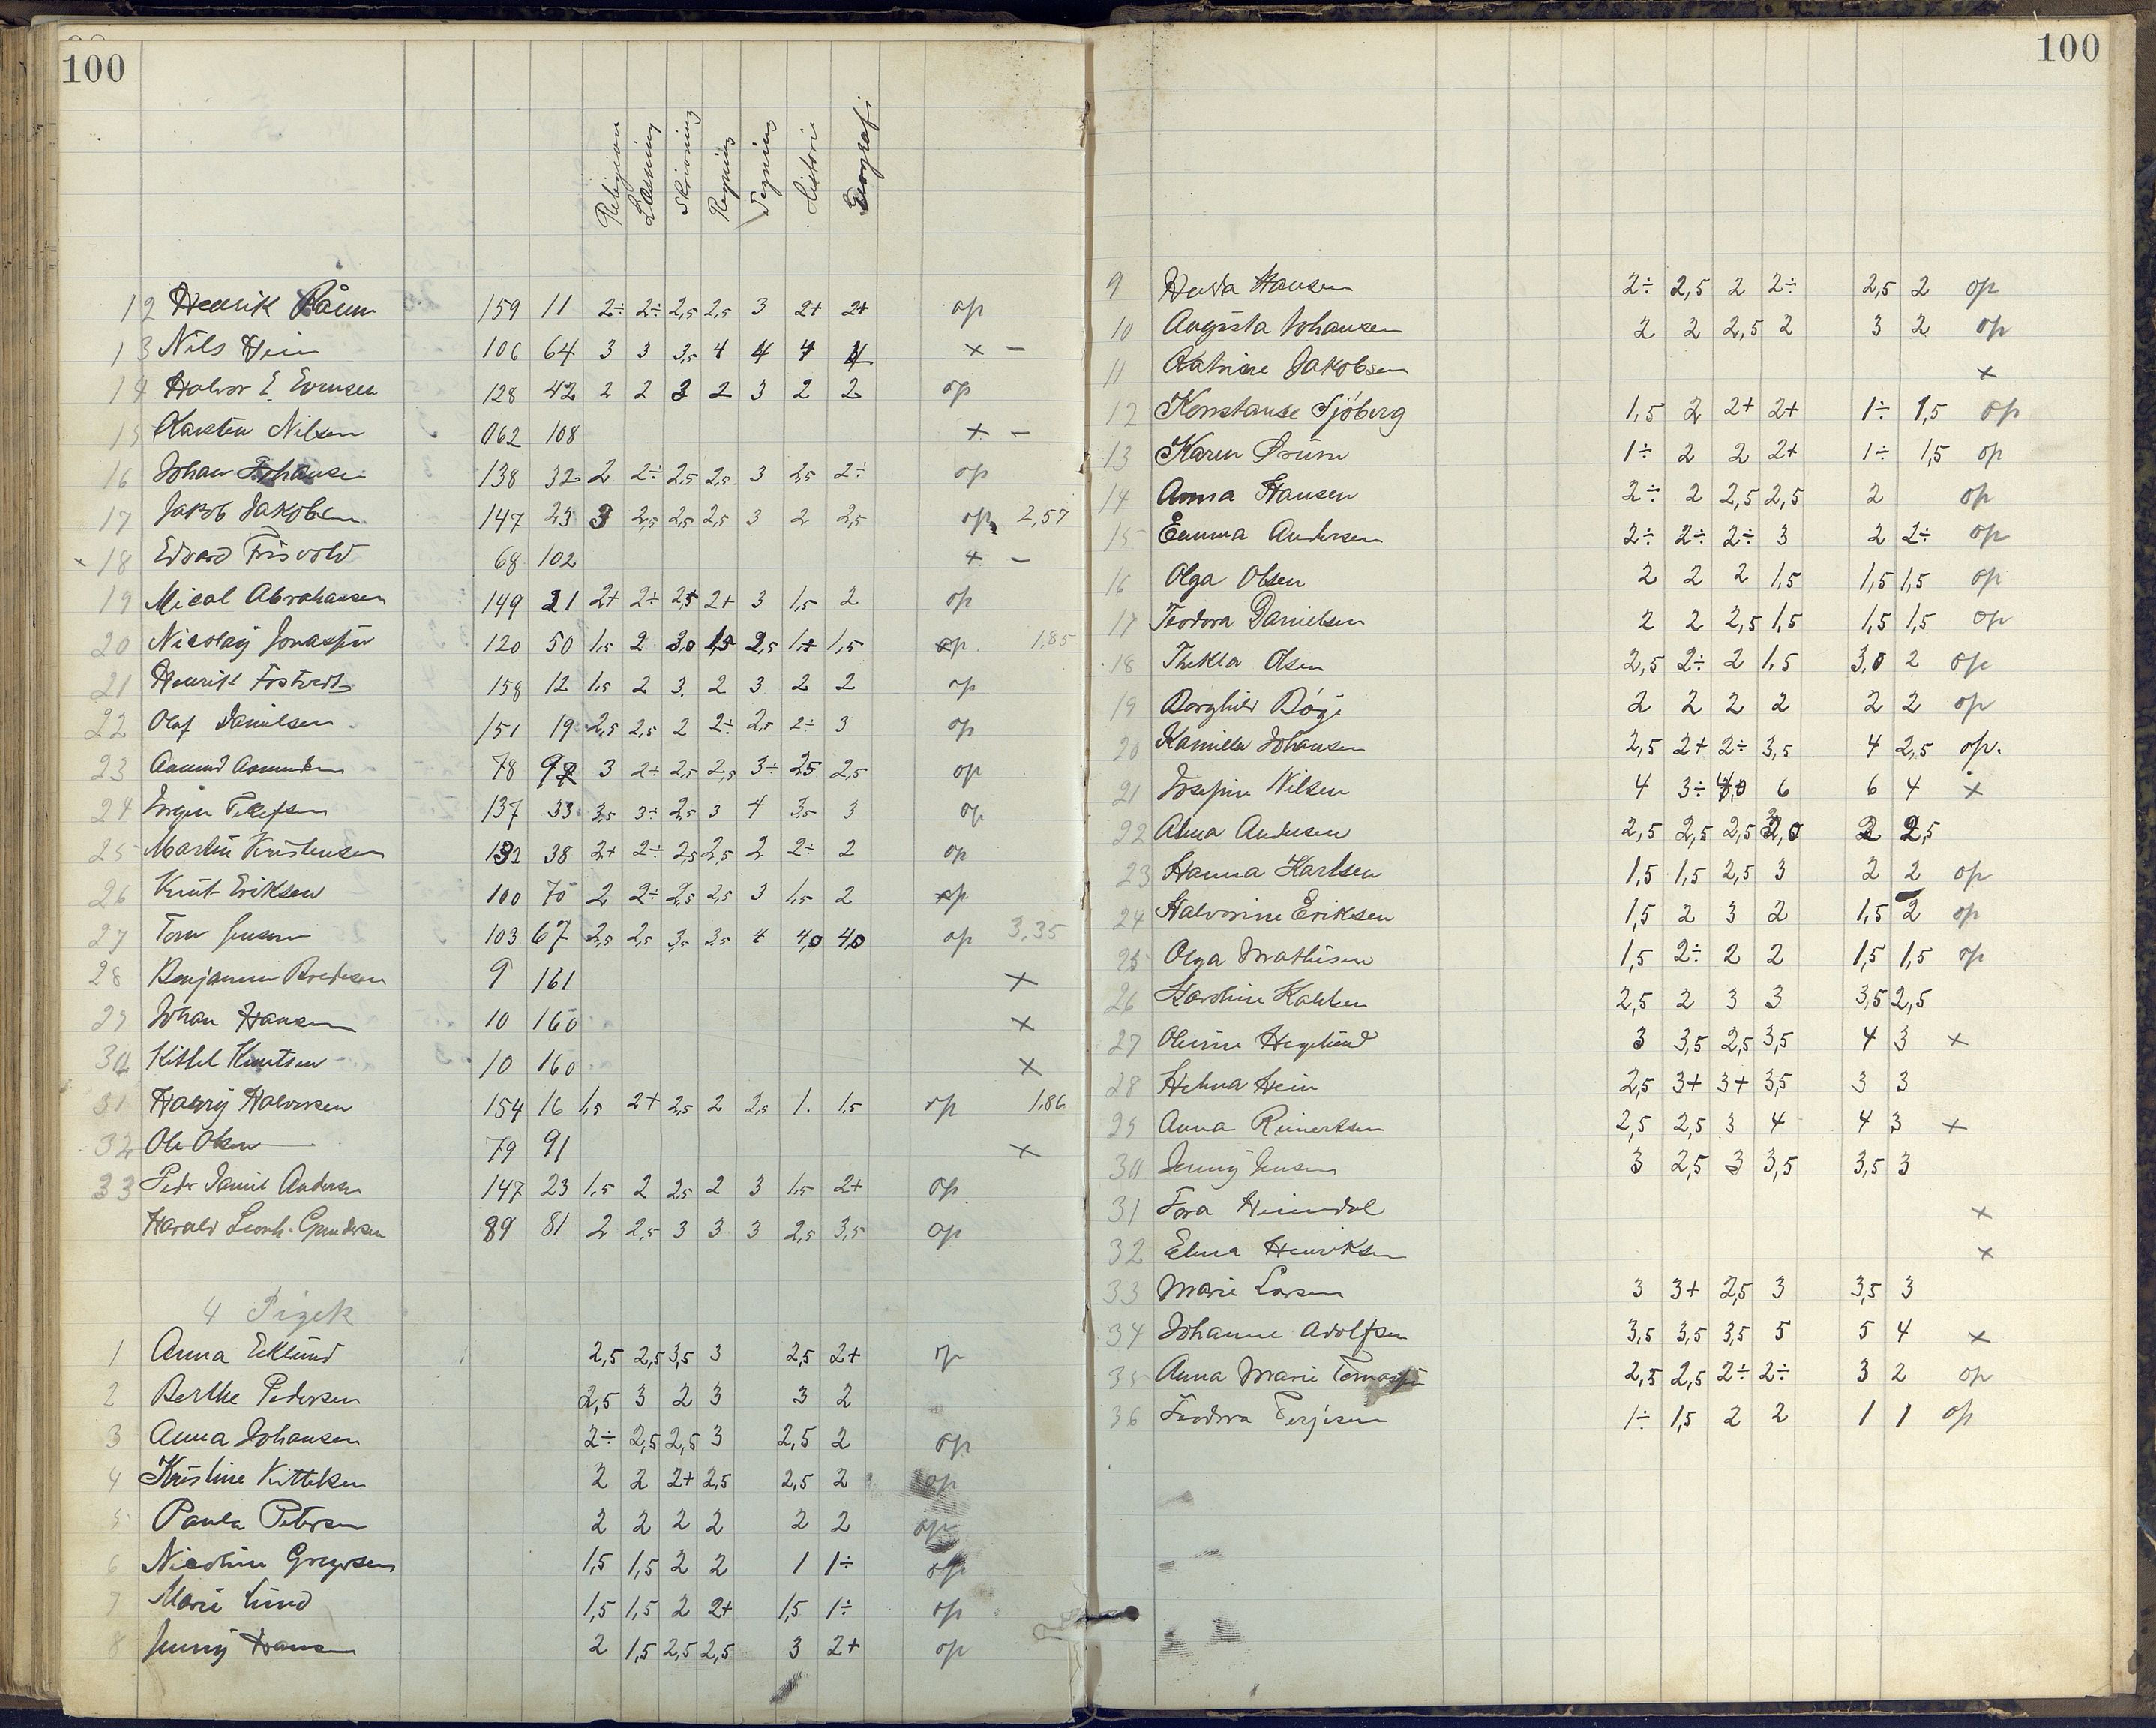 100
Religion Læsning Skrivning Regning Tegning Historie Geografi
12 Henrik 159 11 2÷ 2÷ 2,5 2,5 3 2+ 2+ op
13 Nils Hein 106 64 3 3 3,5 4 4 4 4 × –
14 Halvor E. Evensen 128 42 2 2 3 2 3 2 2 op
15 Karsten Nilsen 062 108 × –
16 Johan Johansen 138 32 2 2÷ 2,5 2,5 3 2,5 2÷ op
17 Jakob Jakobsen 147 23 3 2,5 2,5 2,5 3 2 2,5 op 2,57
× 18 Edvard Frisvold 68 102 × –
19 Mical Abrahamsen 149 21 2+ 2÷ 2,5 2+ 3 1,5 2 op
20 Nicolaÿ Jonassen 120 50 1,5 2 3,0 1,5 2,5 1,+ 1,5 op 1,85
21 Henrik Fostvedt 158 12 1,5 2 3. 2 3 2 2 op
22 Olaf Danielsen 151 19 2,5 2,5 2 2÷ 2,5 2÷ 3 op
23 Aamund Aamundsen 78 92 3 2÷ 2,5 2,5 3÷ 2,5 2,5 op
24 Jørgen Tellefsen 137 33 3,5 3÷ 2,5 3 4 3,5 3 op
25 Martin Kristensen 132 38 2+ 2÷ 2,5 2,5 2 2÷ 2 op
26 Knut Eriksen 100 70 2 2÷ 2,5 2,5 3 1,5 2 op
27 Tom Jensen 103 67 2,5 2,5 3,5 3,5 4 4,0 4,0 op 3,35
28 Benjamin Bredesen 9 161 ×
29 Johan Hansen 10 160 ×
30 Kittel Knutsen 10 160 ×
31 Harry Halvorsen 154 16 1,5 2+ 2,5 2 2,5 1. 1,5 op 1,86
32 Ole Olsen 79 91 ×
33 Peder Daniel Andersen 147 23 1,5 2 2,5 2 3 1,5 2+ op
Harald Leonh. Gundersen 89 81 2 2,5 3 3 3 2,5 3,5 op
4 Pigek
1 Anna Eklund 2,5 2,5 3,5 3 2,5 2+ op
2 Berthe Pedersen 2,5 3 2 3 3 2
3 Anna Johansen 2÷ 2,5 2,5 3 2,5 2 op
4 Kristine Kittelsen 2 2 2+ 2,5 2,5 2 op
5 Paula Petersen 2 2 2 2 2 2 op
6 Nicoline Gregersen 1,5 1,5 2 2 1 1÷ op
7 Marie Lund 1,5 1,5 2 2+ 1,5 1÷ op
8 Jenny Hansen 2 1,5 2,5 2,5 3 2+ op
100
9 Hulda Hansen 2÷ 2,5 2 2÷ 2,5 2 op
10 Augusta Johansen 2 2 2,5 2 3 2 op
11 Katrine Jakobsen ×
12 Konstanse Sjöberg 1,5 2 2+ 2+ 1÷ 1,5 op
13 Karen Ørum 1÷ 2 2 2+ 1÷ 1,5 op
14 Anna Hansen 2÷ 2 2,5 2,5 2 op
15 Emma Andersen 2÷ 2÷ 2÷ 3 2 2÷ op
16 Olga Olsen 2 2 2 1,5 1,5 1,5 op
17 Teodora Danielsen 2 2 2,5 1,5 1,5 1,5 op
18 Thekla Olsen 2,5 2÷ 2 1,5 3,0 2 op
19 Borghild Bøge 2 2 2 2 2 2 op
20 Kamilla Johansen 2,5 2+ 2÷ 3,5 4 2,5 op.
21 Josefine Nilsen 4 3÷ 4,0 6 6 4 ×
22 Alma Andersen 2,5 2,5 2,5 2,0 2 2,5
23 Hanna Karlsen 1,5 1,5 2,5 3 2 2 op
24 Halvorine Eriksen 1,5 2 3 2 1,5 2 op
25 Olga Mathisen 1,5 2÷ 2 2 1,5 1,5 op
26 Karoline Karlsen 2,5 2 3 3 3,5 2,5
27 Olevine Hegelund 3 3,5 2,5 3,5 4 3 ×
28 Helma Hein 2,5 3+ 3+ 3,5 3 3
29 Anna Reinertsen 2,5 2,5 3 4 4 3 ×
30 Jenny Jensen 3 2,5 3 3,5 3,5 3
31 Tora Heimdal ×
32 Elina Henriksen ×
33 Marie Larsen 3 3+ 2,5 3 3,5 3
34 Johanne Adolfsen 3,5 3,5 3,5 5 5 4 ×
35 Anna Marie Tomassen 2,5 2,5 2÷ 2÷ 3 2 op
36 Teodora Terjesen 1÷ 1,5 2 2 1 1 op